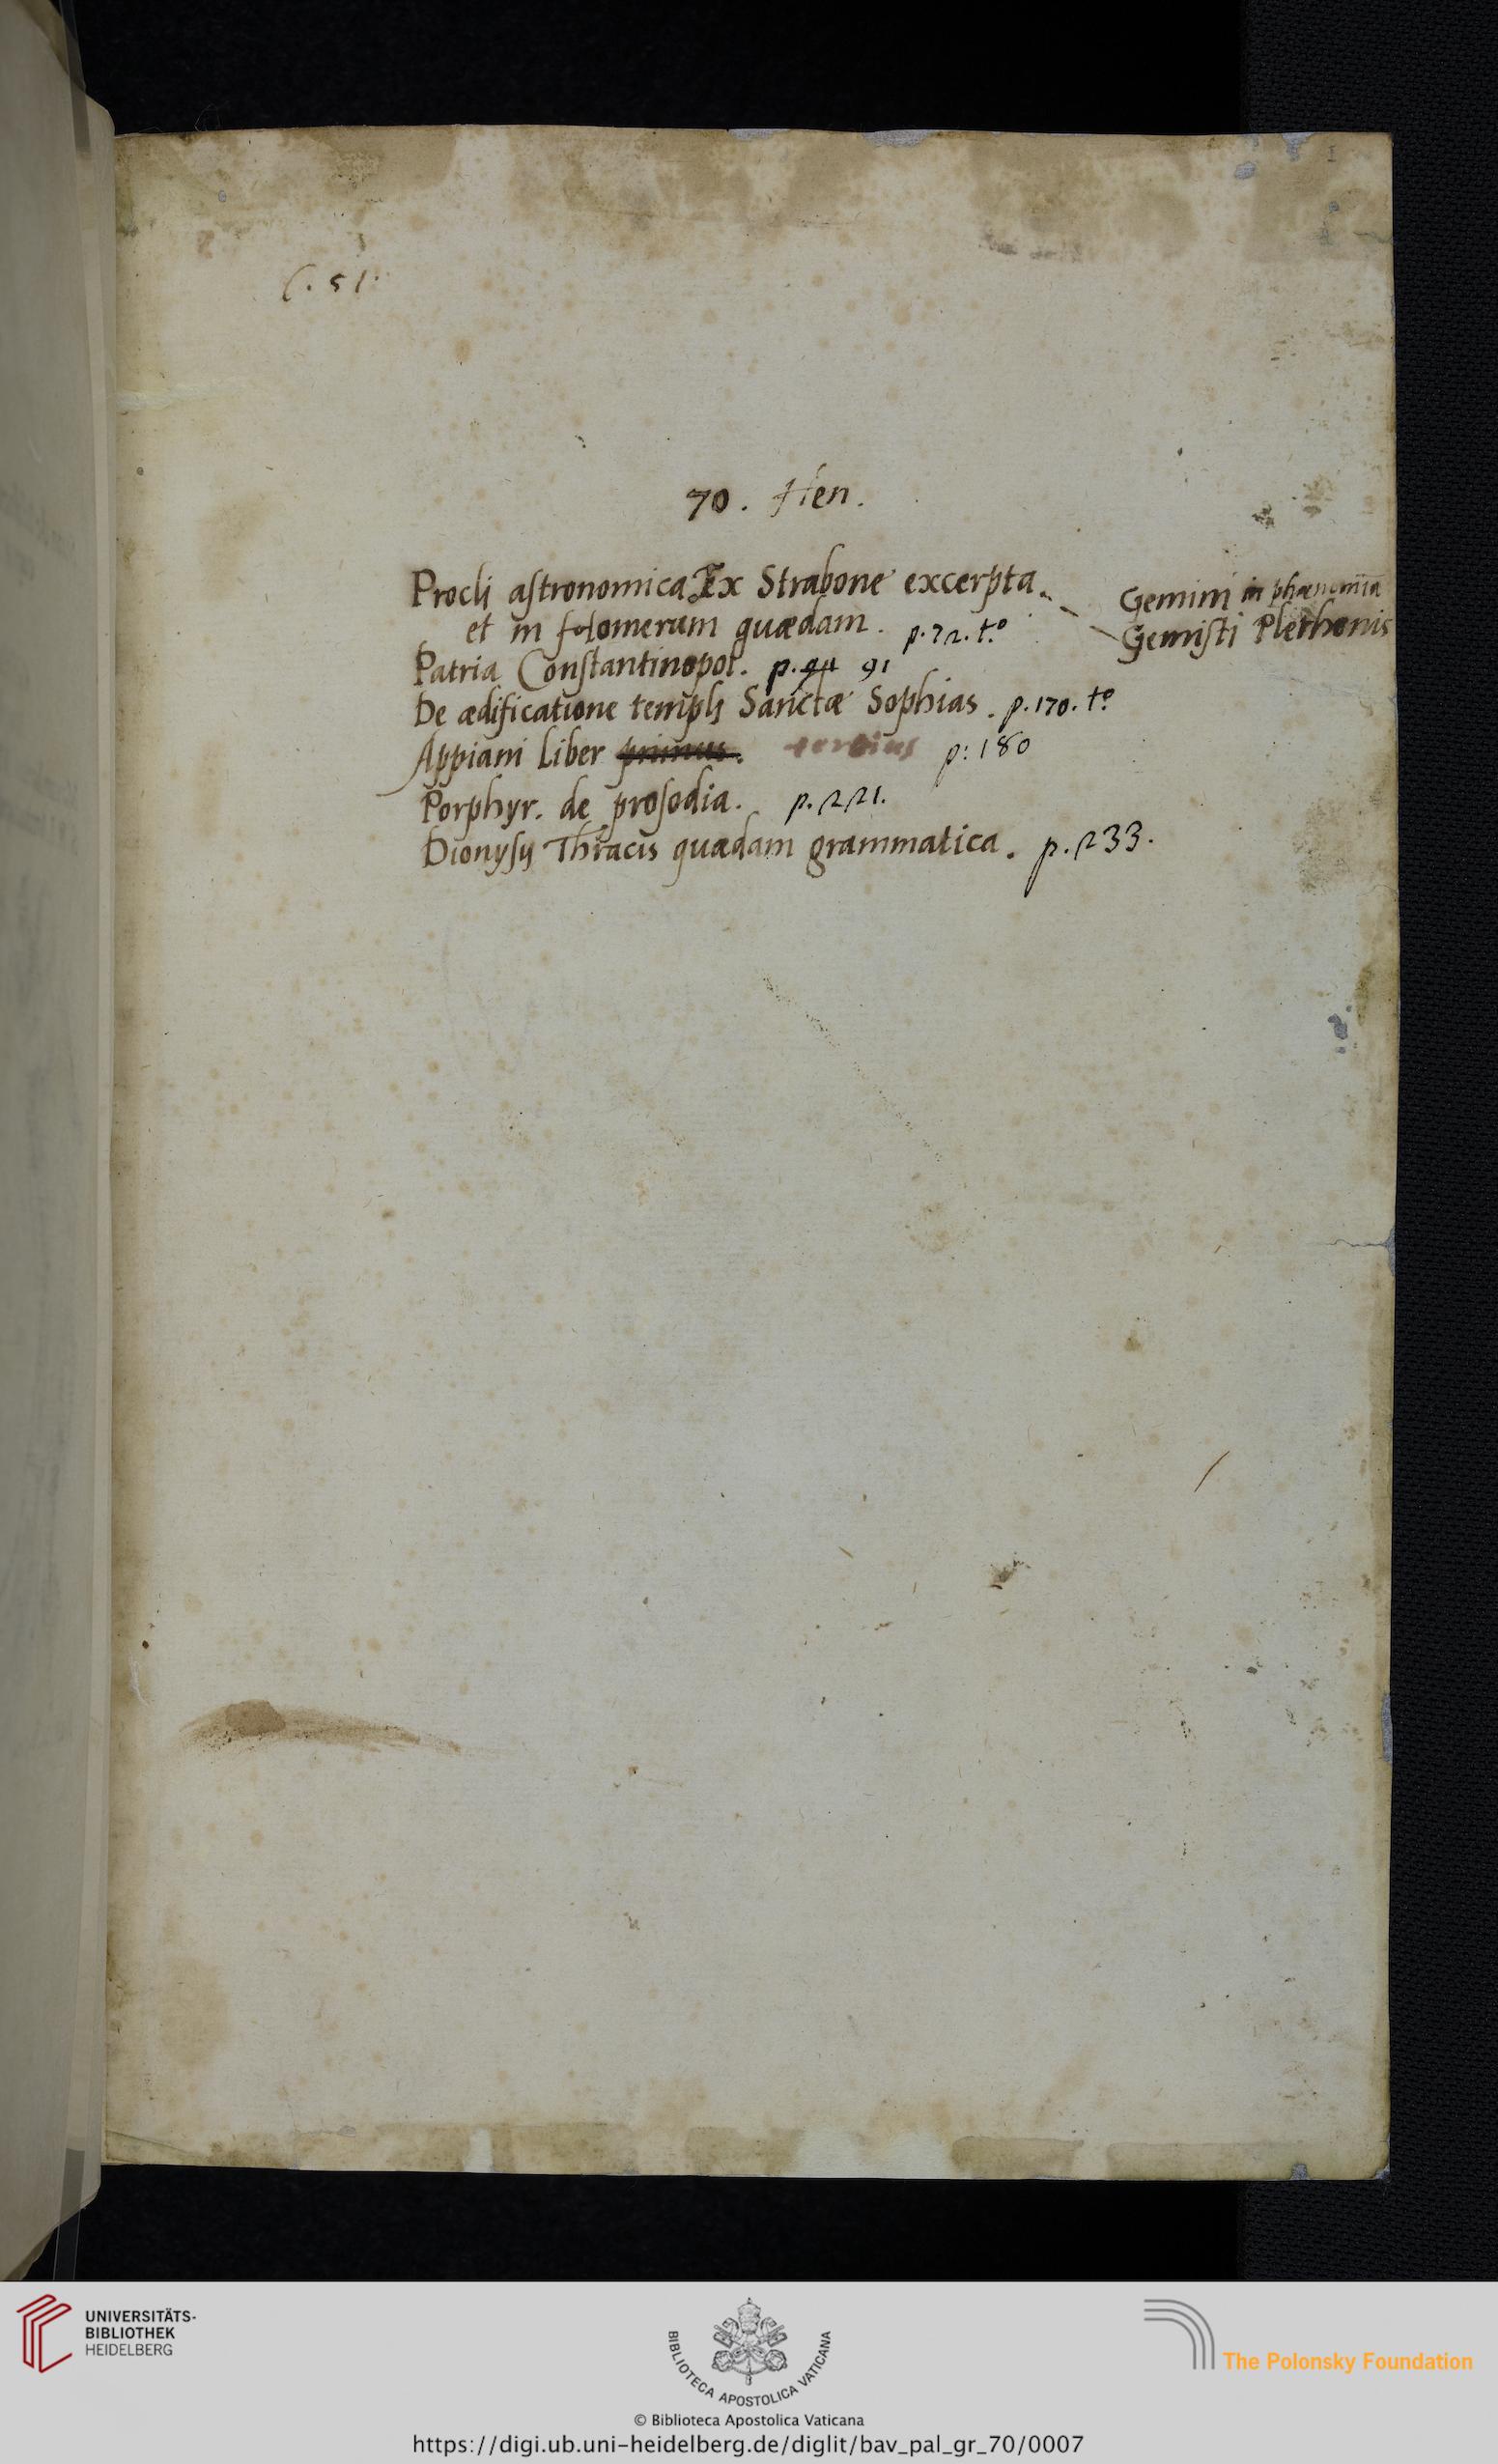 C. 51.
70. Hen.
Procli astronomica Ex Strabone excerpta.
Gemini in phænomīa
et in ptolomeum quædam. p. 72. tº.
Gemisti Plethonis
Patria Constantinopol. p. 91
De ædificatione templi Sanctæ Sophias. p. 170. tº
Appiani Liber primus. tertius p: 180
Porphyr. de prosodia. p. 221.
Dionysij Thracis quædam grammatica. p. 233.
UNIVERSITÄTS-
BIBLIOTHEK
HEIDELBERG
BIBLIOTECA APOSTOLICA VATICANA
The Polonsky Foundation
© Biblioteca Apostolica Vaticana
https://digi.ub.uni-heidelberg.de/diglit/bav_pal_gr_70/0007